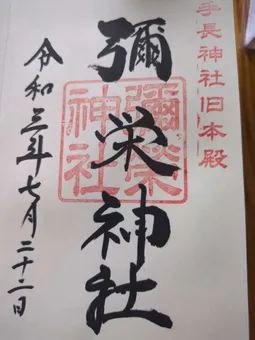 手長神社旧本殿
彌栄神社
彌榮
神社
令和三年七月二十二日